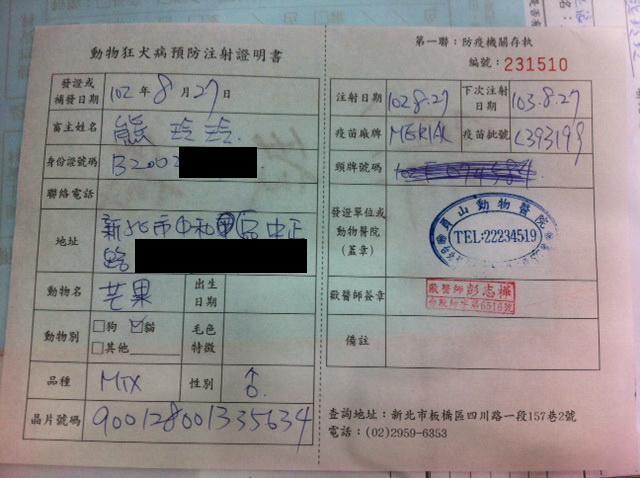 動物狂犬病預防注射證明書
發證或補發日期 102年8月27日
畜主姓名 熊
身份證號碼 B2002
聯絡電話
地址 新北市中和區中正路
動物名 芒果 出生日期
動物別 □狗 ☑貓 □其他 毛色特徵
品種 MIX 性別 ♂
晶片號碼 900128001335634
第一聯:防疫機關存執
編號:231510
注射日期 102.8.27 下次注射日期 103.8.27
疫苗廠牌 MERIAL 疫苗批號
頸牌號碼
發證單位或動物醫院(蓋章) 員山動物醫院 TEL:22234519
獸醫師簽章 獸醫師彭志
備註
查詢地址:新北市板橋區四川路一段157巷2號
電話:(02)2959-6353